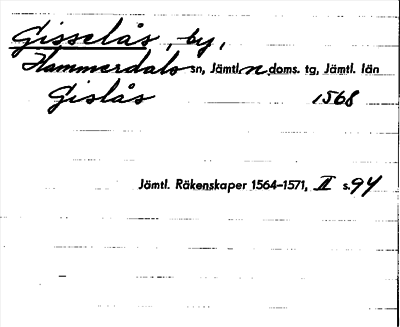 Gisselås, by,
Hammerdals sn, Jämtl. n. doms. tg, Jämtl. län
Gislås 1568
Jämtl. Räkenskaper 1564–1571, II s. 94